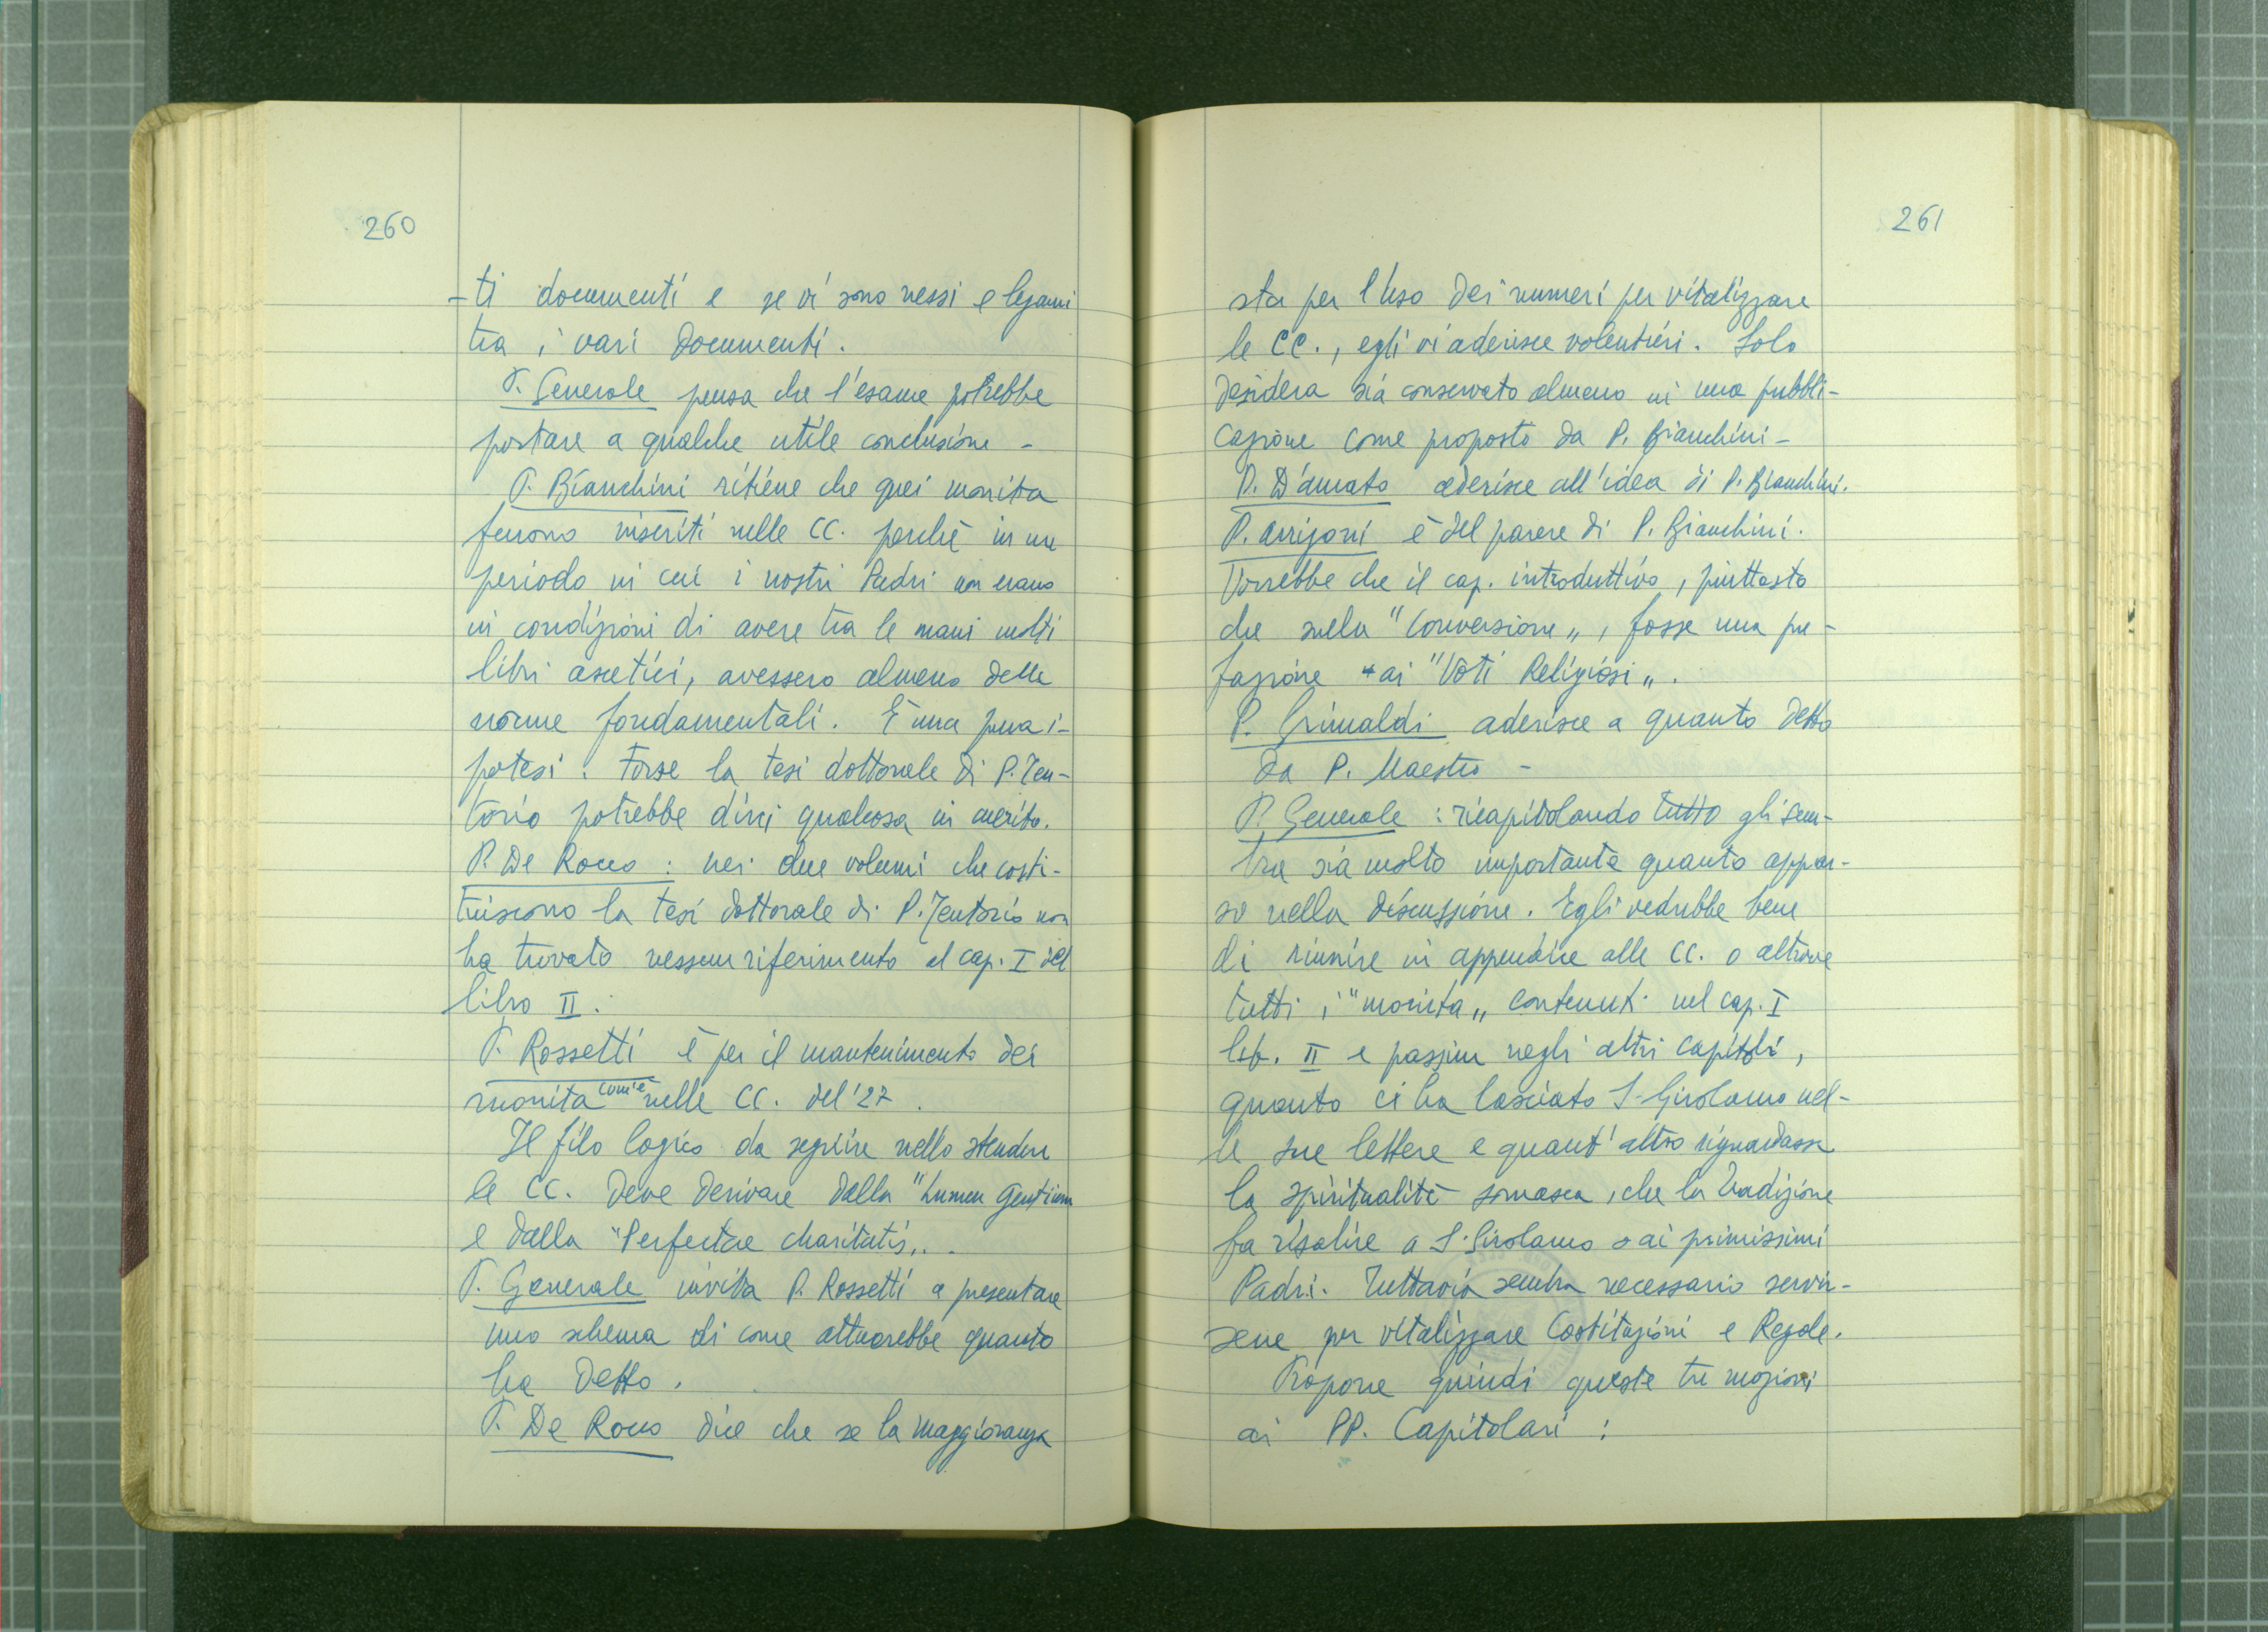 260
-ti documenti e se vi sono nessi e legami
tra i vari documenti.
P. Generale pensa che l'esame potrebbe
portare a qualche utile conclusione -
P. Bianchini ritiene che quei monita
furono inseriti nelle CC. perchè in un
periodo in cui i nostri Padri non erano
in condizioni di avere tra le mani molti
libri ascetici, avessero almeno delle
norme fondamentali. È una pura i-
potesi. Forse la tesi dottorale di P. Ten-
torio potrebbe dirci qualcosa in merito.
P. De Rocco : nei due volumi che costi-
tuiscono la tesi dottorale di P. Tentorio non
ha trovato nessun riferimento al cap. I del
libro II.
P. Rossetti è per il mantenimento dei
monita com'è nelle CC. del '27.
Il filo logico da seguire nello stendere
le CC. deve derivare dalla "Lumen Gentium
e dalla "Perfectae charitatis„.
P. Generale invita P. Rossetti a presentare
uno schema di come attuerebbe quanto
ha detto.
P. De Rocco dice che se la maggioranza
261
sta per l'uso dei numeri per vitalizzare
le CC., egli vi aderisce volentieri. Solo
desidera sia conservato almeno in una pubbli-
cazione come proposto da P. Bianchini -
P. D'Amato aderisce all'idea di P. Bianchini.
P. Arrigoni è del parere di P. Bianchini.
Vorrebbe che il cap. introduttivo, piuttosto
che sulla "Conversione„, fosse una pre-
fazione ai "Voti Religiosi„.
P. Grimaldi aderisce a quanto detto
da P. Maestro -
P. Generale : ricapitolando tutto gli sem-
bra sia molto importante quanto appar-
so nella discussione. Egli vedrebbe bene
di riunire in appendice alle CC. o altrove
tutti i "monita„ contenuti nel cap. I
lib. II e passim negli altri capitoli,
quanto ci ha lasciato S. Girolamo nel-
le sue lettere e quant'altro riguardasse
la spiritualità somasca, che la tradizione
fa risalire a S. Girolamo o ai primissimi
Padri. Tuttavia sembra necessario servir-
sene per vitalizzare Costituzioni e Regole.
Propone quindi queste tre mozioni
ai PP. Capitolari :